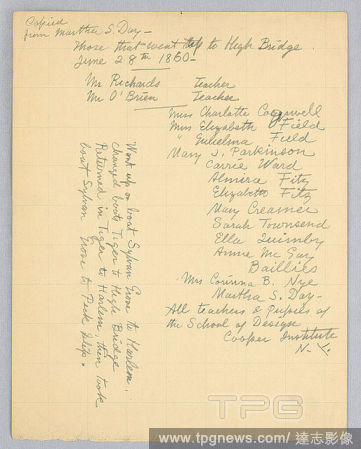 Copied
from Martha S. Day —
Those that went up to High Bridge —
June 28th 1860 —
Mr Richards Teacher
Mr O'Brien Teacher
Miss Charlotte Cogswell
Miss Elizabeth Field
" Gulielma Field
Mary J. Parkinson
Carrie Ward
Almira Fitz
Elizabeth Fitz
Mary Creamer
Sarah Townsend
Ella Quimby
Annie McGay
Baillies
Mrs Corinna B. Nye
Martha S. Day —
All teachers & pupils of
the School of Design
Cooper Institute
N. Y.
Went up on boat Sylvan Grove to Harlem,
changed boats Tiger to High Bridge
Returned in Tiger to Harlem, then took
boat Sylvan Grove to Peck Slip.
TPG
www.tpgnews.com/達志影像